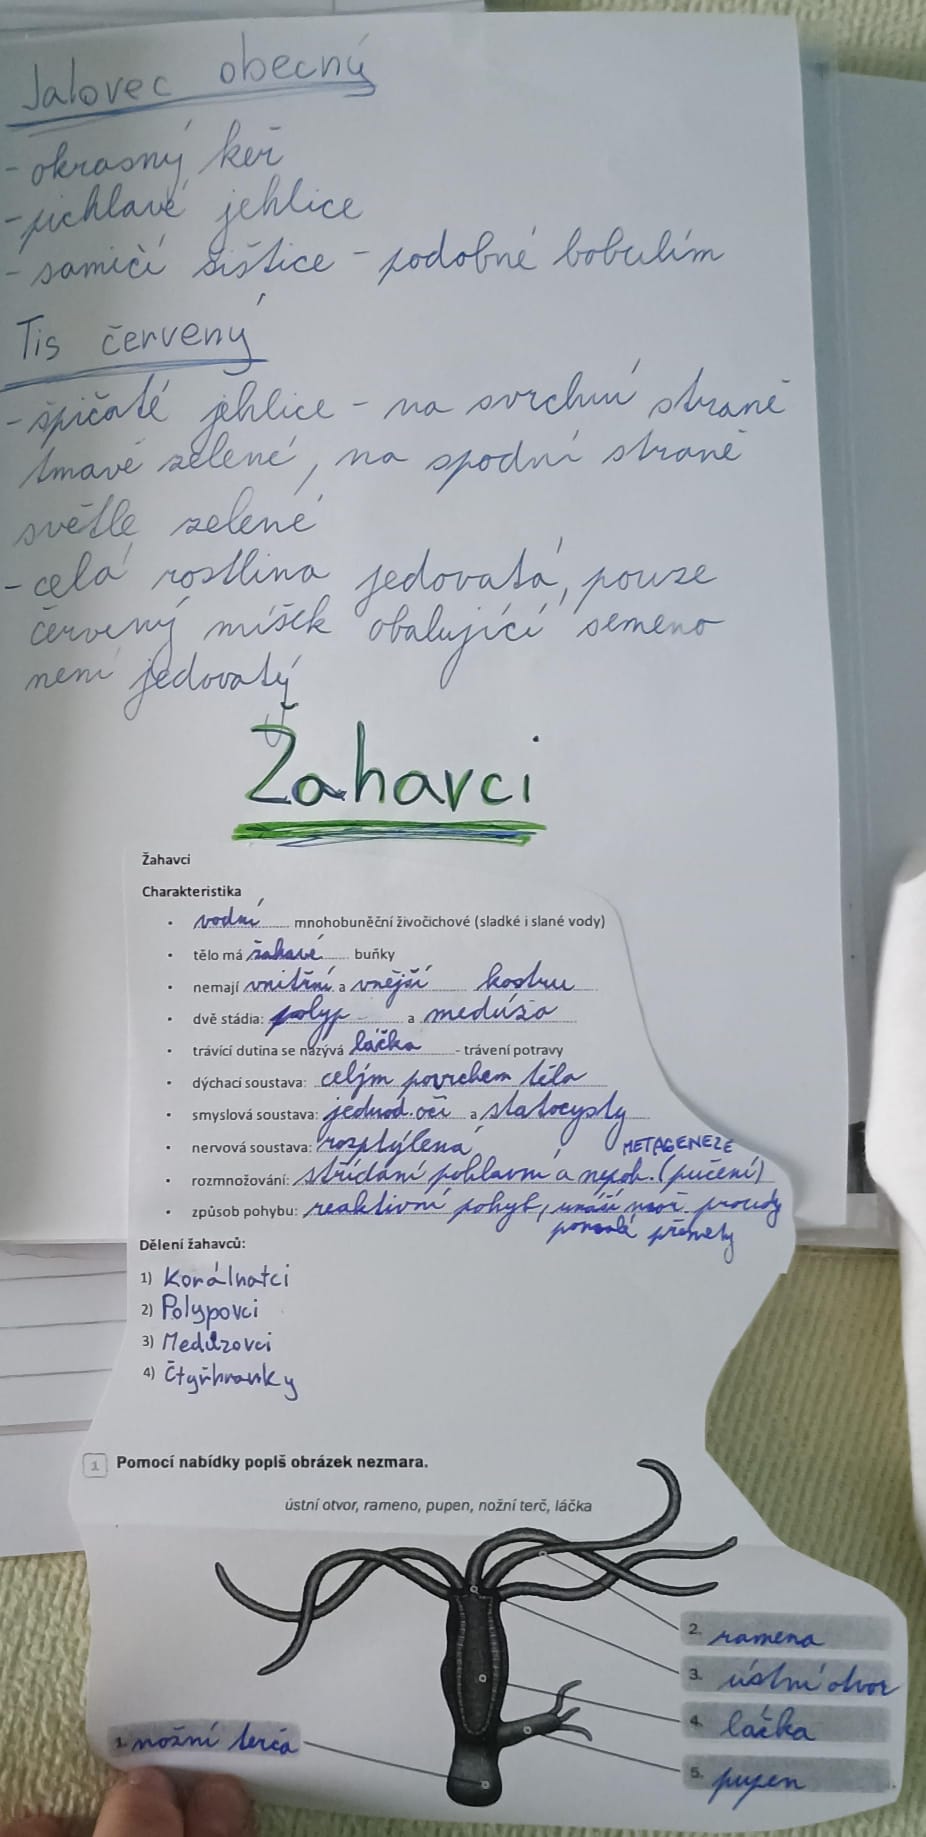 Jalovec obecný
- okrasný keř
- pichlavé jehlice
- samičí šištice - podobné bobulím
Tis červený
- špičaté jehlice - na svrchní straně
tmavě zelené, na spodní straně
světle zelené
- celá rostlina jedovatá, pouze
červený míšek obalující semeno
není jedovatý
Žahavci
Žahavci
Charakteristika
• vodní mnohobuněční živočichové (sladké i slané vody)
• tělo má žahavé buňky
• nemají vnitřní a vnější kostru
• dvě stádia: polyp a medúza
• trávící dutina se nazývá láčka - trávení potravy
• dýchací soustava: celým povrchem těla
• smyslová soustava: jednod. oči a statocysty
• nervová soustava: rozptýlená
METAGENEZE
• rozmnožování: střídání pohlavní a nepoh. (pučení)
• způsob pohybu: reaktivní pohyb, unáší moř. proudy
pomalé přemety
Dělení žahavců:
1) Korálnatci
2) Polypovci
3) Medúzovci
4) Čtyřhranky
1 Pomocí nabídky popiš obrázek nezmara.
ústní otvor, rameno, pupen, nožní terč, láčka
2. ramena
3. ústní otvor
4. láčka
1. nožní terča
5. pupen